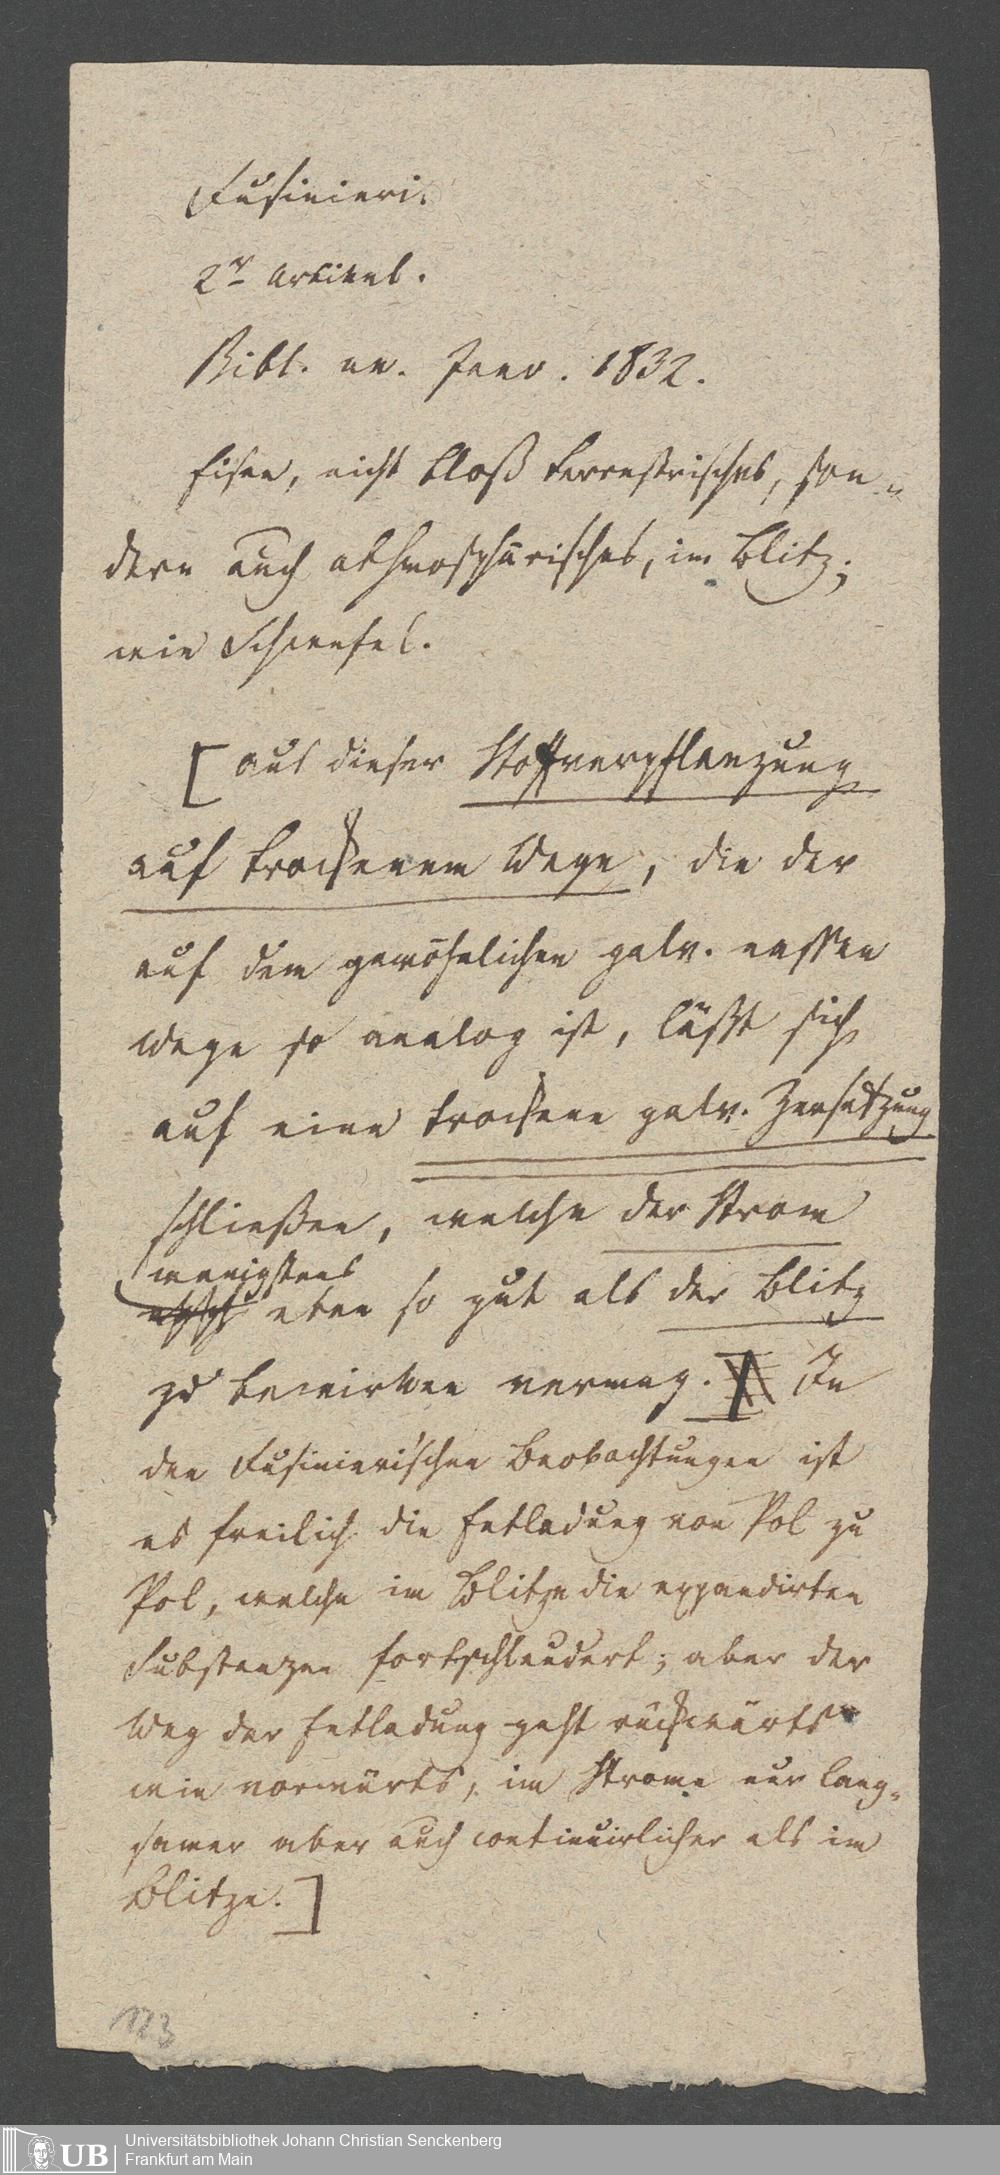 Fusinieri.
2r Artikel.
Bibl. un. Janv. 1832.
Eisen, nicht bloß terrestrisches, son-
dern auch athmosphärisches, im Blitz;
wie Schwefel.
[Aus dieser Stoffverpflanzung
auf trockenem Wege, die der
auf dem gewöhnlichen galv. nassen
Wege so analog ist, läßt sich
auf eine trockene galv. Zersetzung
schließen, welche der Strom
wenigstens
eben so gut als der Blitz
zu bewirken vermag. In
den Fusinieri'schen Beobachtungen ist
es freilich die Entladung von Pol zu
Pol, welche im Blitze die expandirten
Substanzen fortschleudert; aber der
Weg der Entladung geht rückwärts
wie vorwärts, im Strome nur lang-
samer aber auch continuirlicher als im
Blitze.]
123
UB
Universitätsbibliothek Johann Christian Senckenberg
Frankfurt am Main